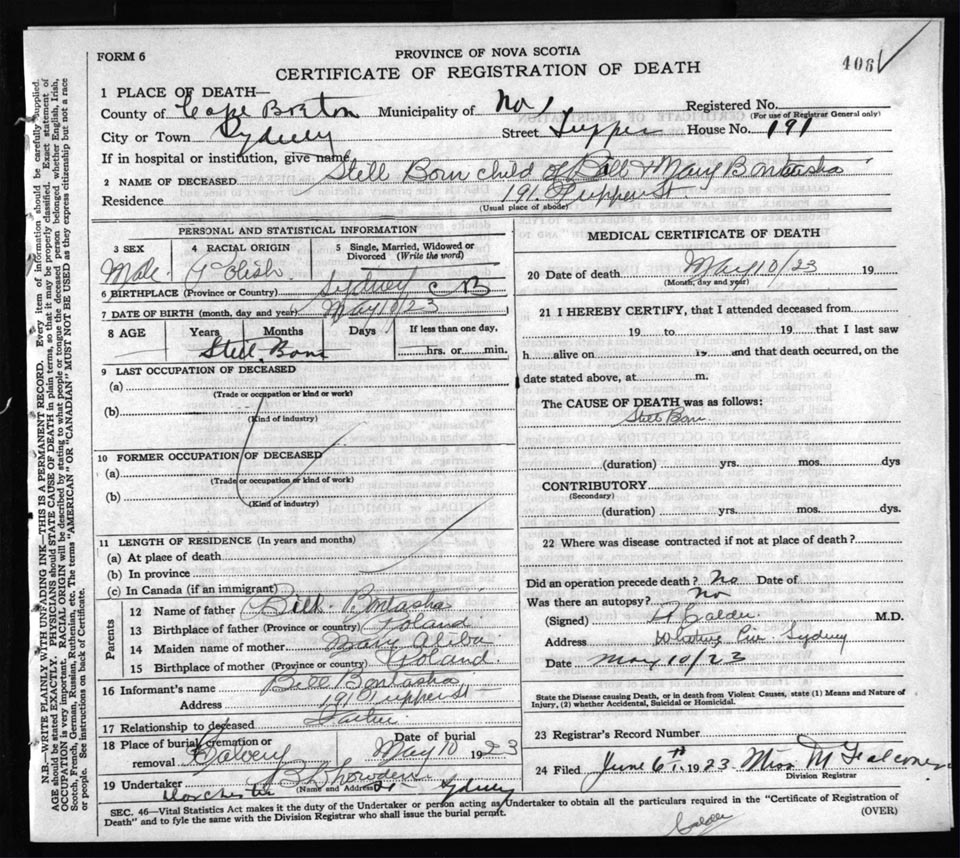 FORM 6
PROVINCE OF NOVA SCOTIA
CERTIFICATE OF REGISTRATION OF DEATH
408
1 PLACE OF DEATH—
County of Cape Breton Municipality of No 1 Registered No.
(For use of Registrar General only)
City or Town Sydney Street Tupper House No. 191
If in hospital or institution, give name
2 NAME OF DECEASED Still Born child of Bill & Mary Bontasha
Residence 191 Tupper St
(Usual place of abode)
PERSONAL AND STATISTICAL INFORMATION
3 SEX 4 RACIAL ORIGIN 5 Single, Married, Widowed or Divorced (Write the word)
Male. Polish.
6 BIRTHPLACE (Province or Country) Sydney CB
7 DATE OF BIRTH (month, day and year) May 10/23
8 AGE Years Months Days If less than one day,
Still Born hrs. or min.
9 LAST OCCUPATION OF DECEASED
(a)
(Trade or occupation or kind or work)
(b)
(Kind of industry)
10 FORMER OCCUPATION OF DECEASED
(a)
(Trade or occupation or kind of work)
(b)
(Kind of industry)
11 LENGTH OF RESIDENCE (In years and months)
(a) At place of death
(b) In province
(c) In Canada (if an immigrant)
Parents
12 Name of father Bill Bontasha
13 Birthplace of father (Province or country) Poland
14 Maiden name of mother Mary
15 Birthplace of mother (Province or country) Poland.
16 Informant's name Bill Bontasha
Address 191 Tupper St
17 Relationship to deceased Father
18 Place of burial, cremation or removal Calvery Date of burial May 10 1923
19 Undertaker
(Name and Address)
Dorchester St Sydney
MEDICAL CERTIFICATE OF DEATH
20 Date of death May 10/23 19
(Month, day and year)
21 I HEREBY CERTIFY, that I attended deceased from
19 to 19 that I last saw
h alive on 19 and that death occurred, on the
date stated above, at m.
The CAUSE OF DEATH was as follows:
Still Born
(duration) yrs. mos. dys
CONTRIBUTORY
(Secondary)
(duration) yrs. mos. dys.
22 Where was disease contracted if not at place of death?
Did an operation precede death? No Date of
Was there an autopsy? No
(Signed) A Calder M.D.
Address Whitney Pier Sydney
Date May 10/23
State the Disease causing Death, or in death from Violent Causes, state (1) Means and Nature of
Injury, (2) whether Accidental, Suicidal or Homicidal.
23 Registrar's Record Number
24 Filed June 6th 1923 Miss M Falconer
Division Registrar
SEC. 46—Vital Statistics Act makes it the duty of the Undertaker or person acting as Undertaker to obtain all the particulars required in the "Certificate of Registration of
Death" and to fyle the same with the Division Registrar who shall issue the burial permit. (OVER)
Calder
N.B.—WRITE PLAINLY WITH UNFADING INK—THIS IS A PERMANENT RECORD. Every item of information should be carefully supplied.
AGE should be stated EXACTLY. PHYSICIANS should STATE CAUSE OF DEATH in plain terms, so that it may be properly classified. Exact statement of
OCCUPATION is very important. RACIAL ORIGIN will be described by stating to what people or tongue the deceased person belonged whether English, Irish,
Scotch, French, German, Russian, Ruthenian, etc. The terms "AMERICAN" OR "CANADIAN" MUST NOT BE USED as they express citizenship but not a race
or people. See instructions on back of Certificate.